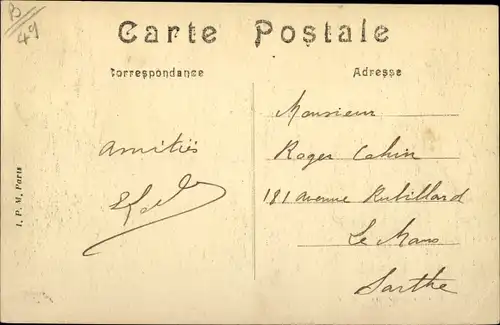 B
49
Carte Postale
Correspondance
Adresse
Amitiés
I. P. M. Paris
Monsieur
Roger Cahin
181 avenue Rubillard
Le Mans
Sarthe